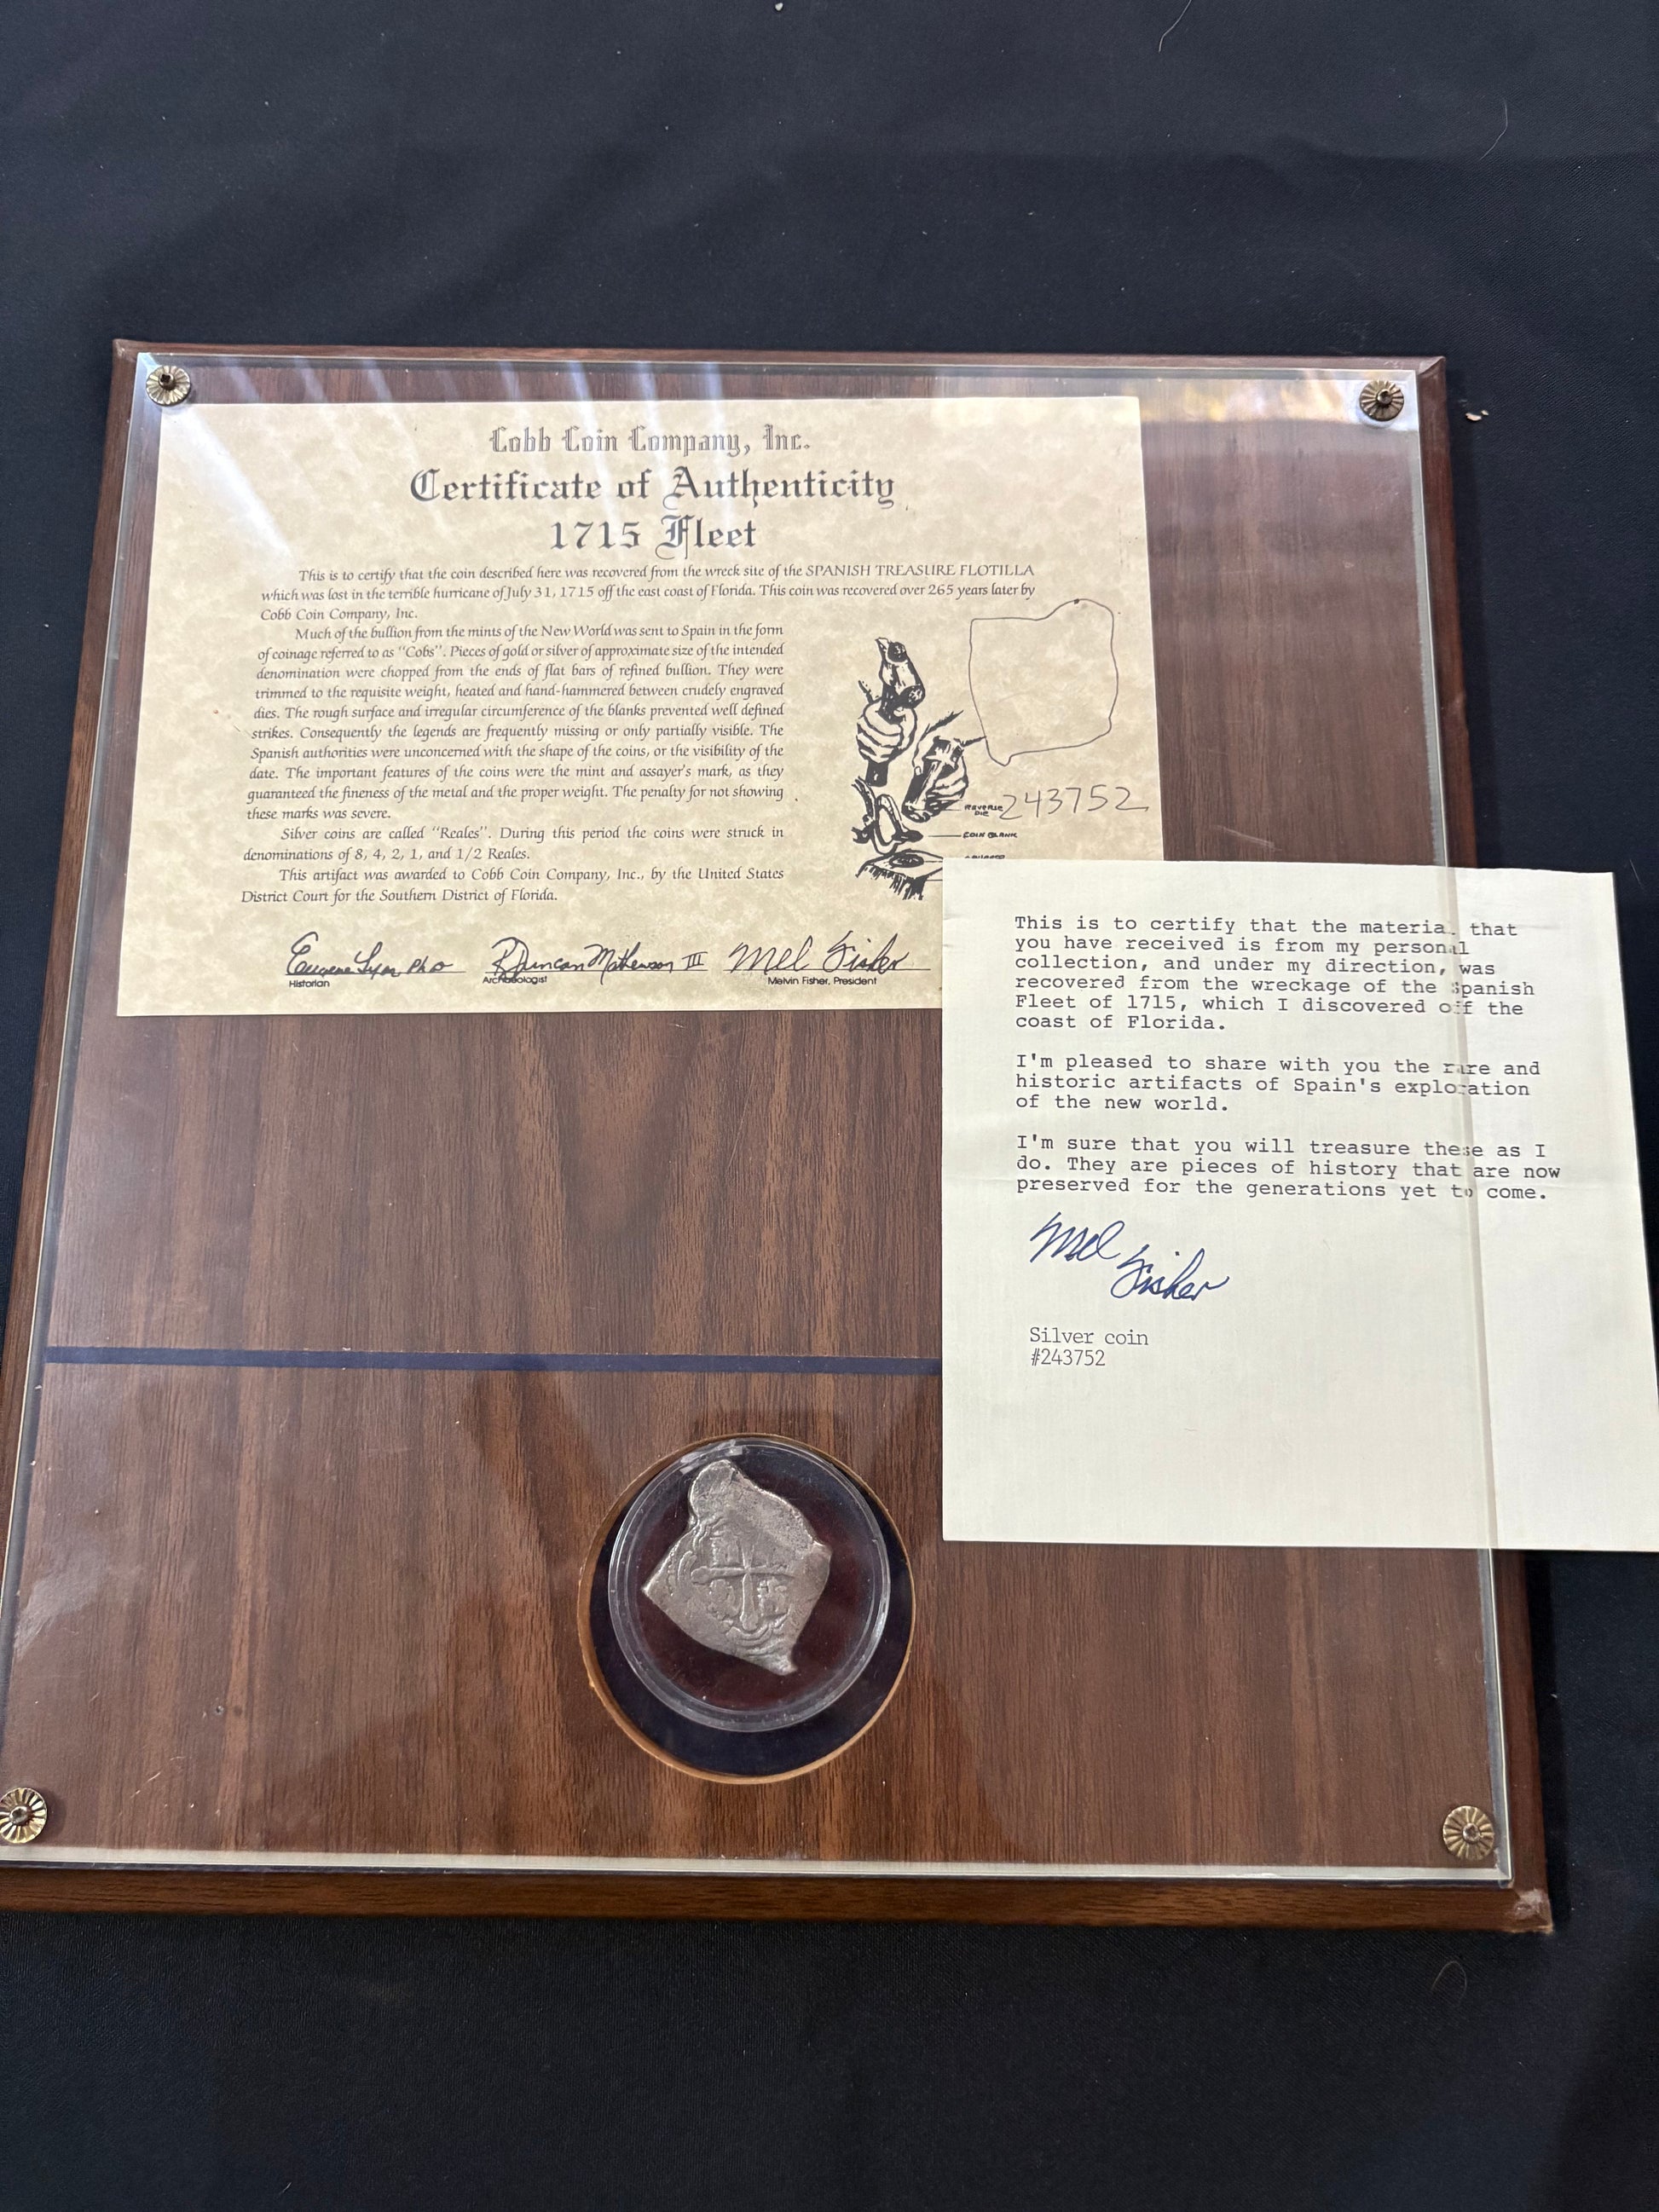 Cobb Coin Company, Inc.
Certificate of Authenticity
1715 Fleet
This is to certify that the coin described here was recovered from the wreck site of the SPANISH TREASURE FLOTILLA
which was lost in the terrible hurricane of July 31, 1715 off the east coast of Florida. This coin was recovered over 265 years later by
Cobb Coin Company, Inc.
Much of the bullion from the mints of the New World was sent to Spain in the form
of coinage referred to as "Cobs". Pieces of gold or silver of approximate size of the intended
denomination were chopped from the ends of flat bars of refined bullion. They were
trimmed to the requisite weight, heated and hand-hammered between crudely engraved
dies. The rough surface and irregular circumference of the blanks prevented well defined
strikes. Consequently the legends are frequently missing or only partially visible. The
Spanish authorities were unconcerned with the shape of the coins, or the visibility of the
date. The important features of the coins were the mint and assayer's mark, as they
guaranteed the fineness of the metal and the proper weight. The penalty for not showing
these marks was severe.
Silver coins are called "Reales". During this period the coins were struck in
denominations of 8, 4, 2, 1, and 1/2 Reales.
This artifact was awarded to Cobb Coin Company, Inc., by the United States
District Court for the Southern District of Florida.
REVERSE DIE
243752
COIN BLANK
Eugene Lyon PhD
Historian
R Duncan Mathewson III
Archaeologist
Mel Fisher
Melvin Fisher, President
This is to certify that the material that
you have received is from my personal
collection, and under my direction, was
recovered from the wreckage of the Spanish
Fleet of 1715, which I discovered off the
coast of Florida.
I'm pleased to share with you the rare and
historic artifacts of Spain's exploration
of the new world.
I'm sure that you will treasure these as I
do. They are pieces of history that are now
preserved for the generations yet to come.
Mel Fisher
Silver coin
#243752